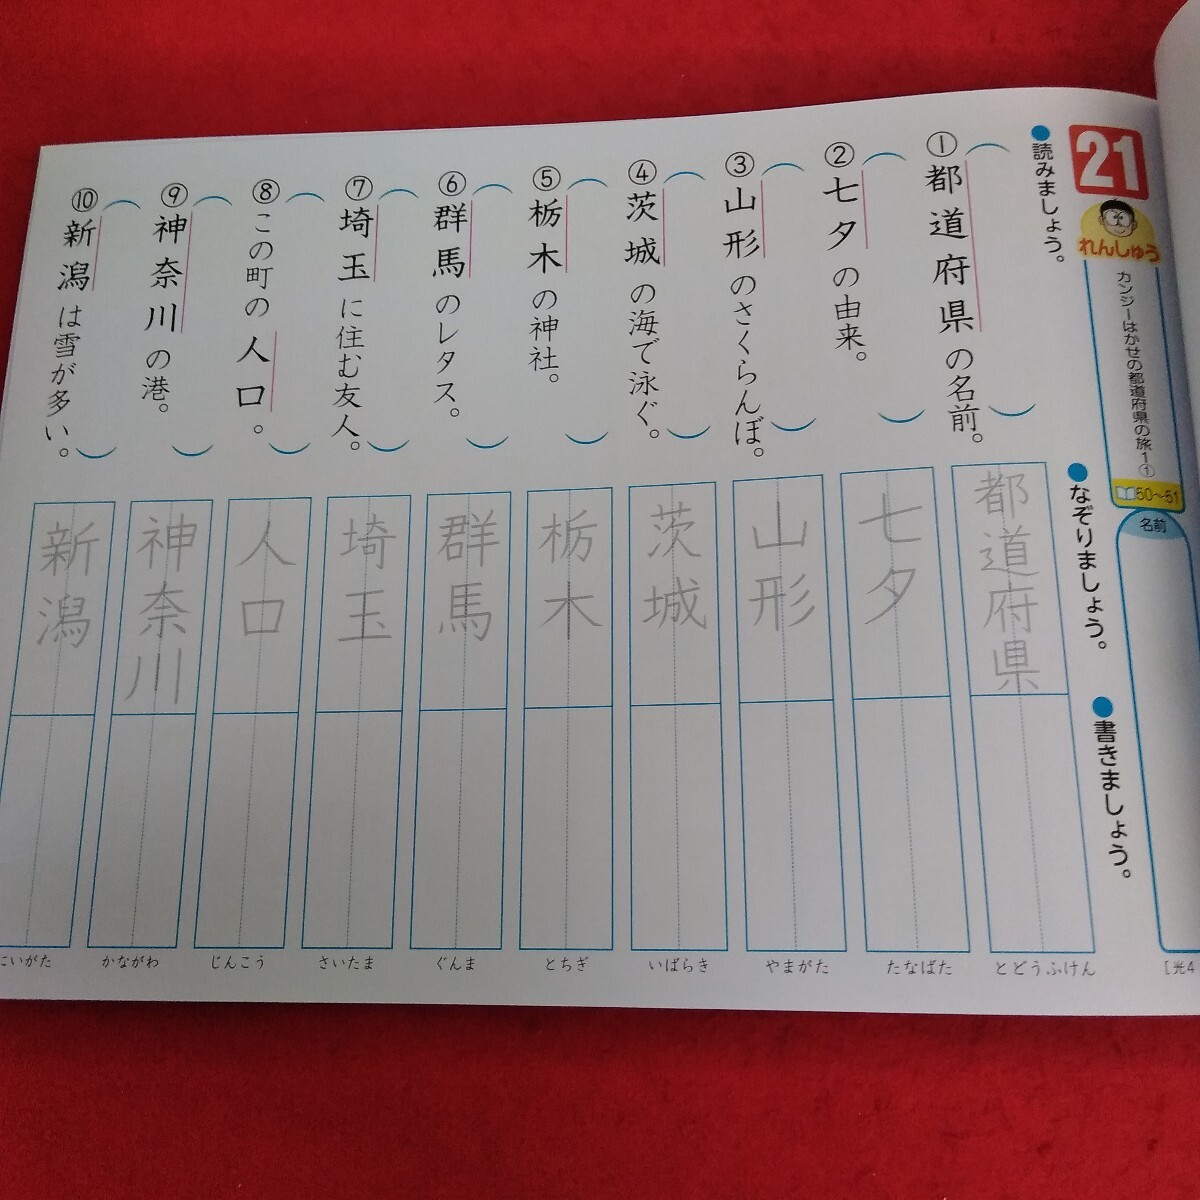 21
れんしゅう
カンジーはかせの都道府県の旅1①
50〜51
名前
[光4
●読みましょう。
①都道府県の名前。
②七夕の由来。
③山形のさくらんぼ。
④茨城の海で泳ぐ。
⑤栃木の神社。
⑥群馬のレタス。
⑦埼玉に住む友人。
⑧この町の人口。
⑨神奈川の港。
⑩新潟は雪が多い。
●なぞりましょう。
都道府県
七夕
山形
茨城
栃木
群馬
埼玉
人口
神奈川
新潟
●書きましょう。
とどうふけん
たなばた
やまがた
いばらき
とちぎ
ぐんま
さいたま
じんこう
かながわ
にいがた